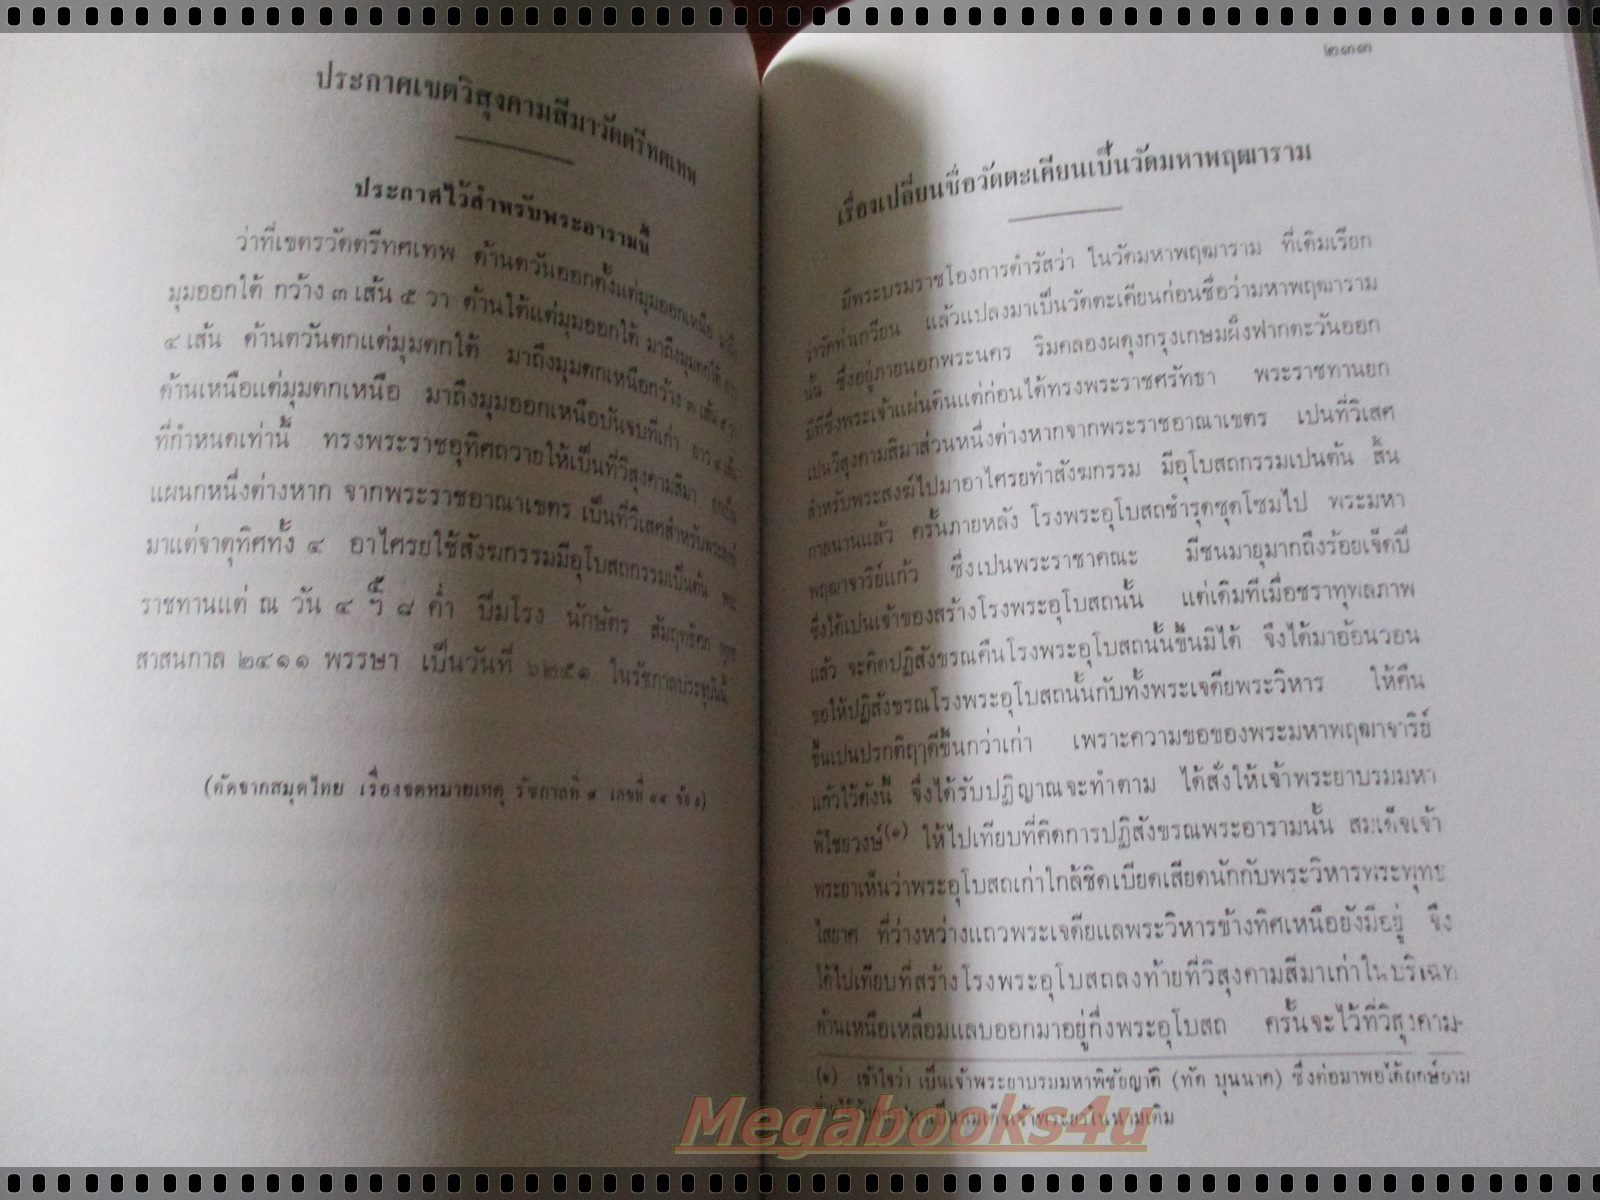 ประกาศเขตวิสุงคามสีมาวัดตรีทศเทพ
ประกาศไว้สำหรับพระอารามนี้
ว่าที่เขตรวัดตรีทศเทพ ด้านตวันออกตั้งแต่มุมออกเหนือ มาถึง
มุมออกใต้ กว้าง ๓ เส้น ๕ วา ด้านใต้แต่มุมออกใต้ มาถึงมุมตกใต้ ยาว
๔ เส้น ด้านตวันตกแต่มุมตกใต้ มาถึงมุมตกเหนือกว้าง ๓ เส้น ๕ วา
ด้านเหนือแต่มุมตกเหนือ มาถึงมุมออกเหนือบันจบที่เก่า ยาว ๔ เส้น
ที่กำหนดเท่านี้ ทรงพระราชอุทิศถวายให้เป็นที่วิสุงคามสีมา ยกเป็น
แผนกหนึ่งต่างหาก จากพระราชอาณาเขตร เป็นที่วิเสศสำหรับพระสงฆ์
มาแต่จาตุทิศทั้ง ๔ อาไศรยใช้สังฆกรรมมีอุโบสถกรรมเป็นต้น พระ
ราชทานแต่ ณ วัน ๔ ๕ ฯ ๘ ค่ำ ปีมโรง นักษัตร สัมฤทธิศก พุทธ
สาสนกาล ๒๔๑๑ พรรษา เป็นวันที่ ๖๒๕๑ ในรัชกาลประจุบันนี้
(คัดจากสมุดไทย เรื่องจดหมายเหตุ รัชกาลที่ ๔ เลขที่
๒๓๓
เรื่องเปลี่ยนชื่อวัดตะเคียนเป็นวัดมหาพฤฒาราม
มีพระบรมราชโองการดำรัสว่า ในวัดมหาพฤฒาราม ที่เดิมเรียก
ว่าวัดท่าเกวียน แล้วแปลงมาเป็นวัดตะเคียนก่อนชื่อว่ามหาพฤฒาราม
นั้น ซึ่งอยู่ภายนอกพระนคร ริมคลองผดุงกรุงเกษมฝั่งฟากตะวันออก
มีที่ซึ่งพระเจ้าแผ่นดินแต่ก่อนได้ทรงพระราชศรัทธา พระราชทานยก
เปนวิสุงคามสิมาส่วนหนึ่งต่างหากจากพระราชอาณาเขตร เปนที่วิเสศ
สำหรับพระสงฆ์ไปมาอาไศรยทำสังฆกรรม มีอุโบสถกรรมเปนต้น สิ้น
กาลนานแล้ว ครั้นภายหลัง โรงพระอุโบสถชำรุดซุดโซมไป พระมหา
พฤฒาจาริย์แก้ว ซึ่งเปนพระราชาคณะ มีชนมายุมากถึงร้อยเจ็ดปี
ซึ่งได้เปนเจ้าของสร้างโรงพระอุโบสถนั้น แต่เดิมทีเมื่อชราทุพลภาพ
แล้ว จะคิดปฏิสังขรณคืนโรงพระอุโบสถนั้นขึ้นมิได้ จึงได้มาอ้อนวอน
ขอให้ปฏิสังขรณโรงพระอุโบสถนั้นกับทั้งพระเจดียพระวิหาร ให้คืน
ขึ้นเปนปรกติฤๅดีขึ้นกว่าเก่า เพราะความขอของพระมหาพฤฒาจาริย์
แก้วไว้ดังนี้ จึ่งได้รับปฏิญาณจะทำตาม ได้สั่งให้เจ้าพระยาบรมมหา
พิไชยวงษ์(๑) ให้ไปเทียบที่คิดการปฏิสังขรณพระอารามนั้น สมเด็จเจ้า
พระยาเห็นว่าพระอุโบสถเก่าใกล้ชิดเบียดเสียดนักกับพระวิหารพระพุทธ
ไสยาศ ที่ว่างหว่างแถวพระเจดียแลพระวิหารข้างทิศเหนือยังมีอยู่ จึง
ได้ไปเทียบที่สร้างโรงพระอุโบสถลงท้ายที่วิสุงคามสีมาเก่าในบริเฉท
ด้านเหนือเหลื่อมแลบออกมาอยู่กึ่งพระอุโบสถ ครั้นจะไว้ที่วิสุงคาม-
(๑) เข้าใจว่า เป็นเจ้าพระยาบรมมหาพิชัยญาติ (ทัต บุนนาค) ซึ่งต่อมาพอได้ฤกษ์ยาม
เป็นสมเด็จเจ้าพระยาในนามเดิม
Megabooks4u